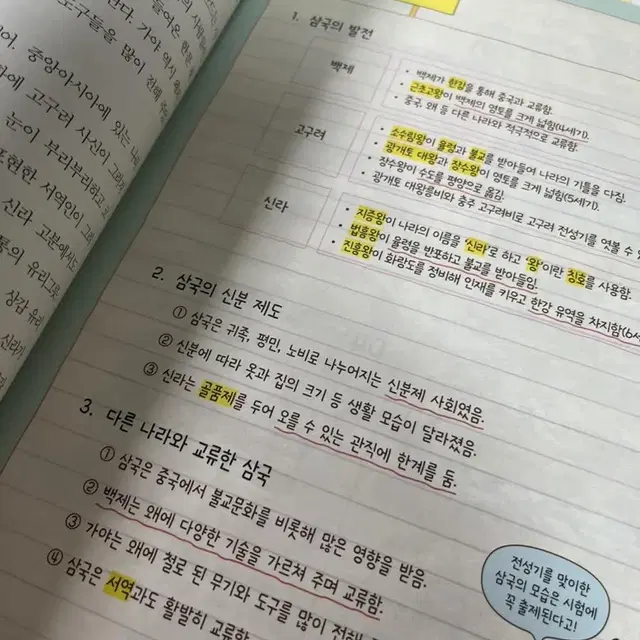 들어온
한다. 가야 역시 철
도구들을 많이 전해
중앙아시아에 있는
에 고구려 사신이 그려
눈이 부리부리하고
표현한 서역인이 그려
신라 고분에서
통의 유리그릇
상감 유리
신라가
1. 삼국의 발전
백제
• 백제가 한강을 통해 중국과 교류함.
• 근초고왕이 백제의 영토를 크게 넓힘(4세기).
• 중국, 왜 등 다른 나라와 적극적으로 교류함.
고구려
• 소수림왕이 율령과 불교를 받아들여 나라의 기틀을 다짐.
• 광개토 대왕과 장수왕이 영토를 크게 넓힘(5세기).
• 장수왕이 수도를 평양으로 옮김.
• 광개토 대왕릉비와 충주 고구려비로 고구려 전성기를 엿볼 수
신라
• 지증왕이 나라의 이름을 '신라'로 하고 '왕'이란 칭호를 사용함.
• 법흥왕이 율령을 반포하고 불교를 받아들임.
• 진흥왕이 화랑도를 정비해 인재를 키우고 한강 유역을 차지함(6세
2. 삼국의 신분 제도
① 삼국은 귀족, 평민, 노비로 나누어지는 신분제 사회였음.
② 신분에 따라 옷과 집의 크기 등 생활 모습이 달라졌음.
③ 신라는 골품제를 두어 오를 수 있는 관직에 한계를 둠.
3. 다른 나라와 교류한 삼국
① 삼국은 중국에서 불교문화를 비롯해 많은 영향을 받음.
② 백제는 왜에 다양한 기술을 가르쳐 주며 교류함.
③ 가야는 왜에 철로 된 무기와 도구를 많이 전해
④ 삼국은 서역과도 활발히 교류함
전성기를 맞이한
삼국의 모습은 시험에
꼭 출제된다고!